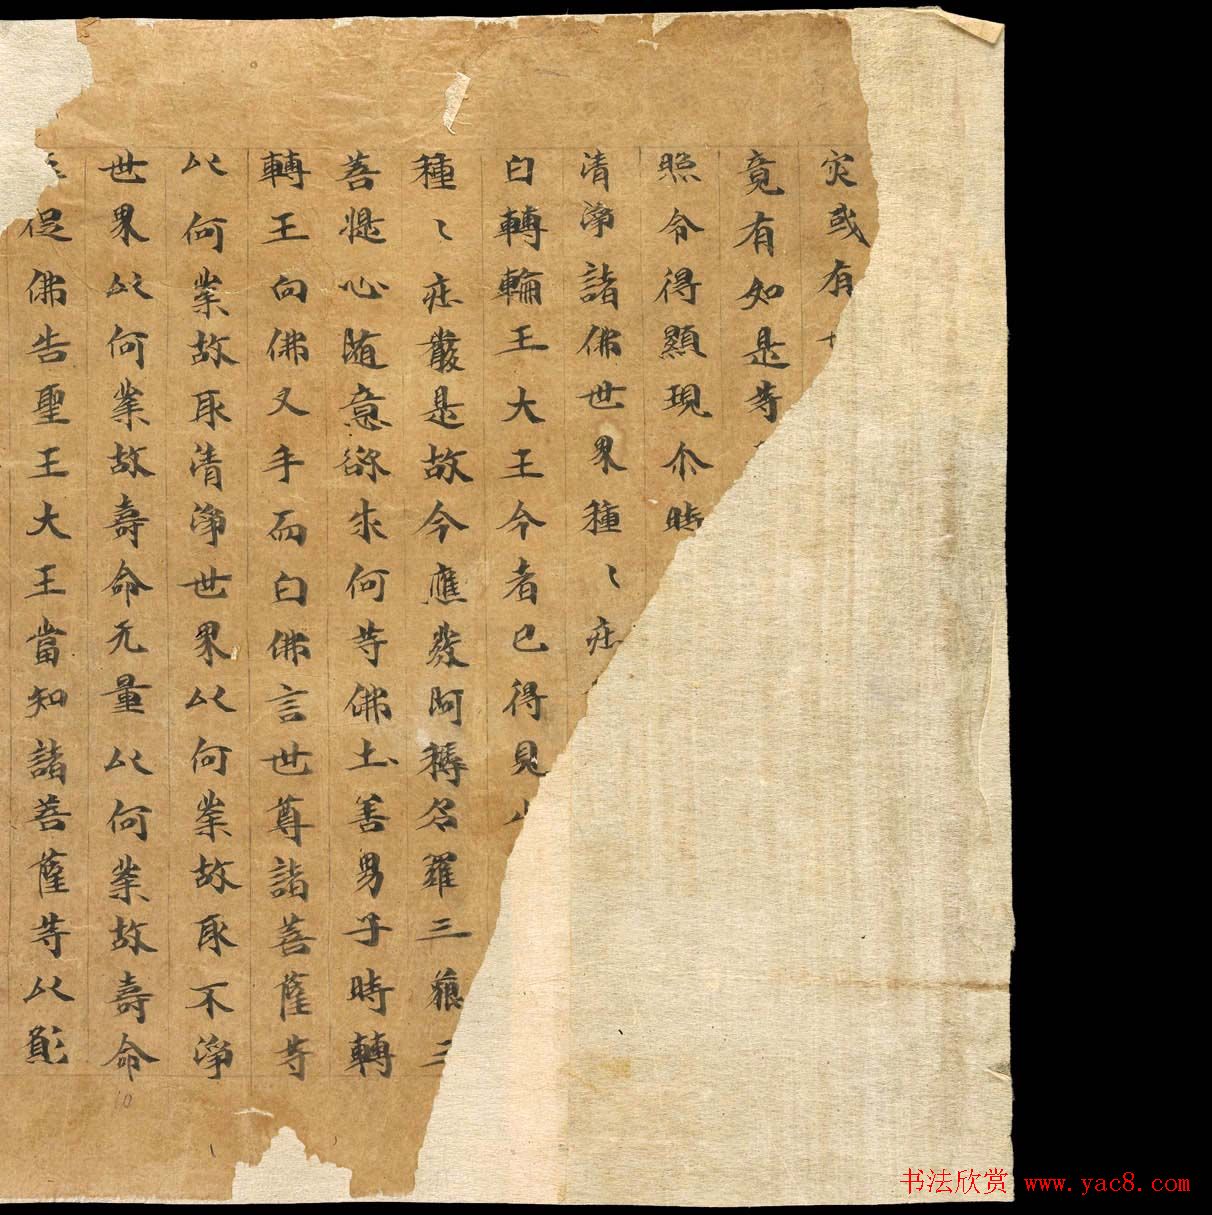 灾或有
竟有如是等
照令得顯現尒時
清淨諸佛世界種〻莊
白轉輪王大王今者已得見
種〻莊嚴是故今應發阿耨多羅三藐三
菩提心隨意欲求何等佛土善男子時轉
轉王向佛叉手而白佛言世尊諸菩薩等
以何業故取清淨世界以何業故取不淨
世界以何業故壽命无量以何業故壽命
促佛告聖王大王當知諸菩薩等以願
10
书法欣赏 www.yac8.com